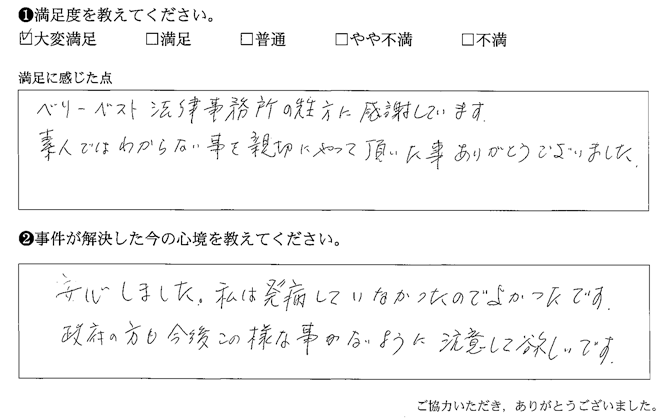 ❶満足度を教えてください。
☑大変満足 □満足 □普通 □やや不満 □不満
満足に感じた点
ベリーベスト法律事務所の皆方に感謝しています。
素人ではわからない事を親切にやって頂いた事ありがとうございました。
❷事件が解決した今の心境を教えてください。
安心しました。私は発病していなかったのでよかったです。
政府の方も今後この様な事がないように注意して欲しいです。
ご協力いただき，ありがとうございました。